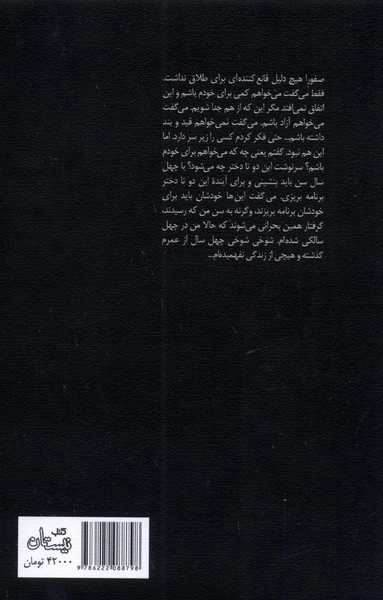 صفورا هیچ دلیل قانع‌کننده‌ای برای طلاق نداشت.
فقط می‌گفت می‌خواهم کمی برای خودم باشم و این
اتفاق نمی‌افتد مگر این که از هم جدا شویم. می‌گفت
می‌خواهم آزاد باشم. می‌گفت نمی‌خواهم قید و بند
داشته باشم... حتی فکر کردم کسی را زیر سر دارد. اما
این هم نبود. گفتم یعنی چه که می‌خواهم برای خودم
باشم؟ سرنوشت این دو تا دختر چه می‌شود؟ با چهل
سال سن باید بنشینی و برای آیندهٔ این دو تا دختر
برنامه بریزی. می گفت این‌ها خودشان باید برای
خودشان برنامه بریزند، وگرنه به سن من که رسیدند،
گرفتار همین بحرانی می‌شوند که حالا من در چهل
سالگی شده‌ام. شوخی شوخی چهل سال از عمرم
گذشته و هیچی از زندگی نفهمیده‌ام...
کتاب
نیستان
۴۲۰۰۰ تومان
9 786222 088798